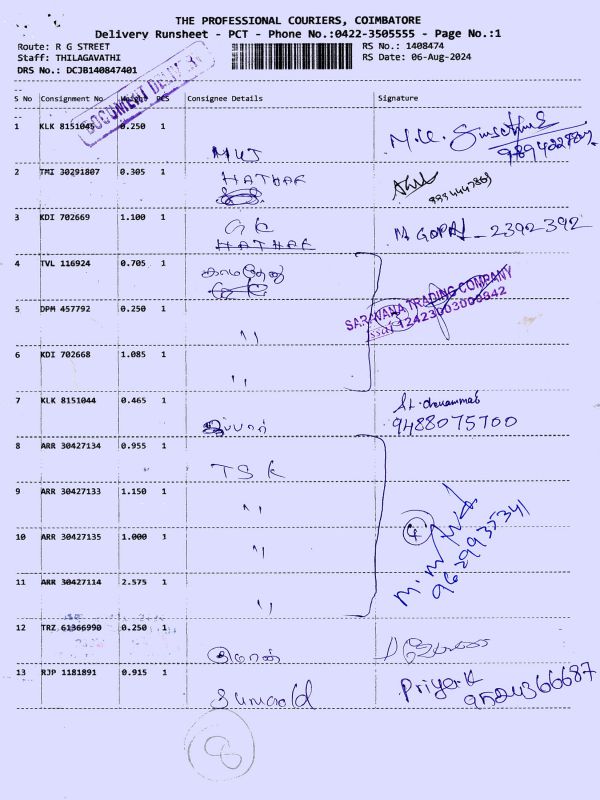 THE PROFESSIONAL COURIERS, COIMBATORE
Delivery Runsheet - PCT - Phone No.:0422-3505555 - Page No.:1
Route: R G STREET RS No.: 1408474
Staff: THILAGAVATHI RS Date: 06-Aug-2024
DRS No.: DCJB140847401
DOCUMENT DELIVER
S No Consignment No Weight PCS Consignee Details Signature
1 KLK 8151045 0.250 1
MKJ
2 TMI 30291807 0.305 1
HATHAK
3 KDI 702669 1.100 1
GK M GOPAL - 2392392
HATHAK
4 TVL 116924 0.705 1
காமதேனு
SARAVANA TRADING COMPANY
5 DPM 457792 0.250 1
"
6 KDI 702668 1.085 1
"
7 KLK 8151044 0.465 1
9488075700
8 ARR 30427134 0.955 1
TSK
9 ARR 30427133 1.150 1
"
10 ARR 30427135 1.000 1
"
4
11 ARR 30427114 2.575 1
"
12 TRZ 61366990 0.250 1
13 RJP 1181891 0.915 1
Priya.K
8